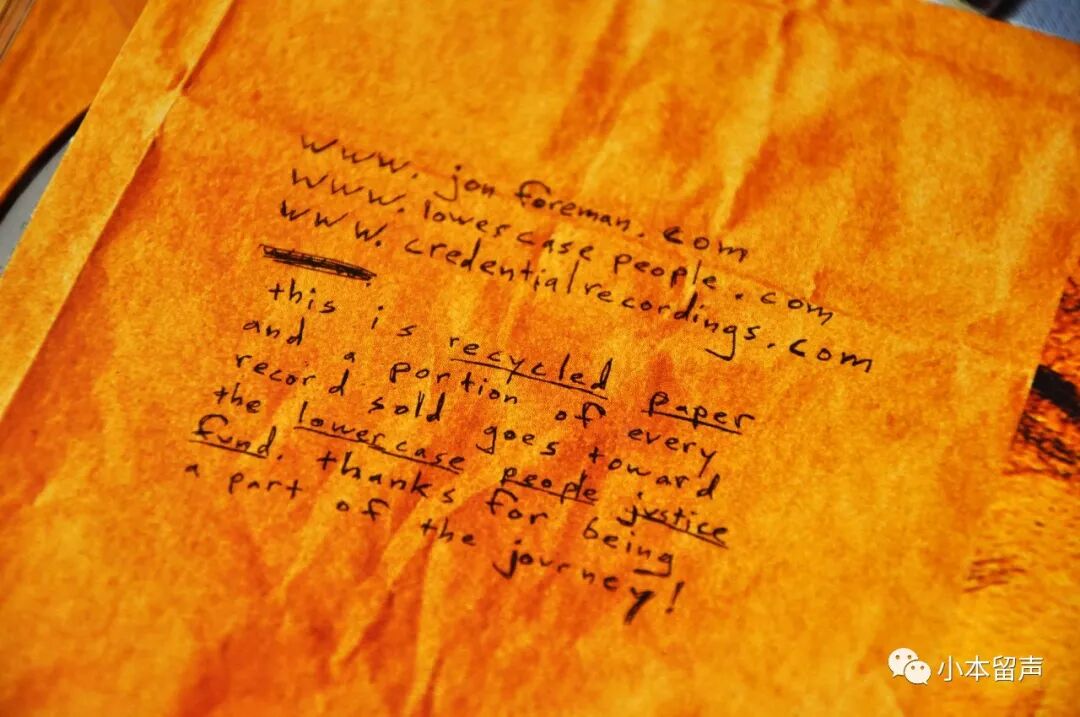 www. jon foreman. com
www. lowercase people. com
www. credentialrecordings. com
this is recycled paper
and a portion of every
record sold goes toward
the lowercase people justice
fund. thanks for being
a part of the journey!
小本留声